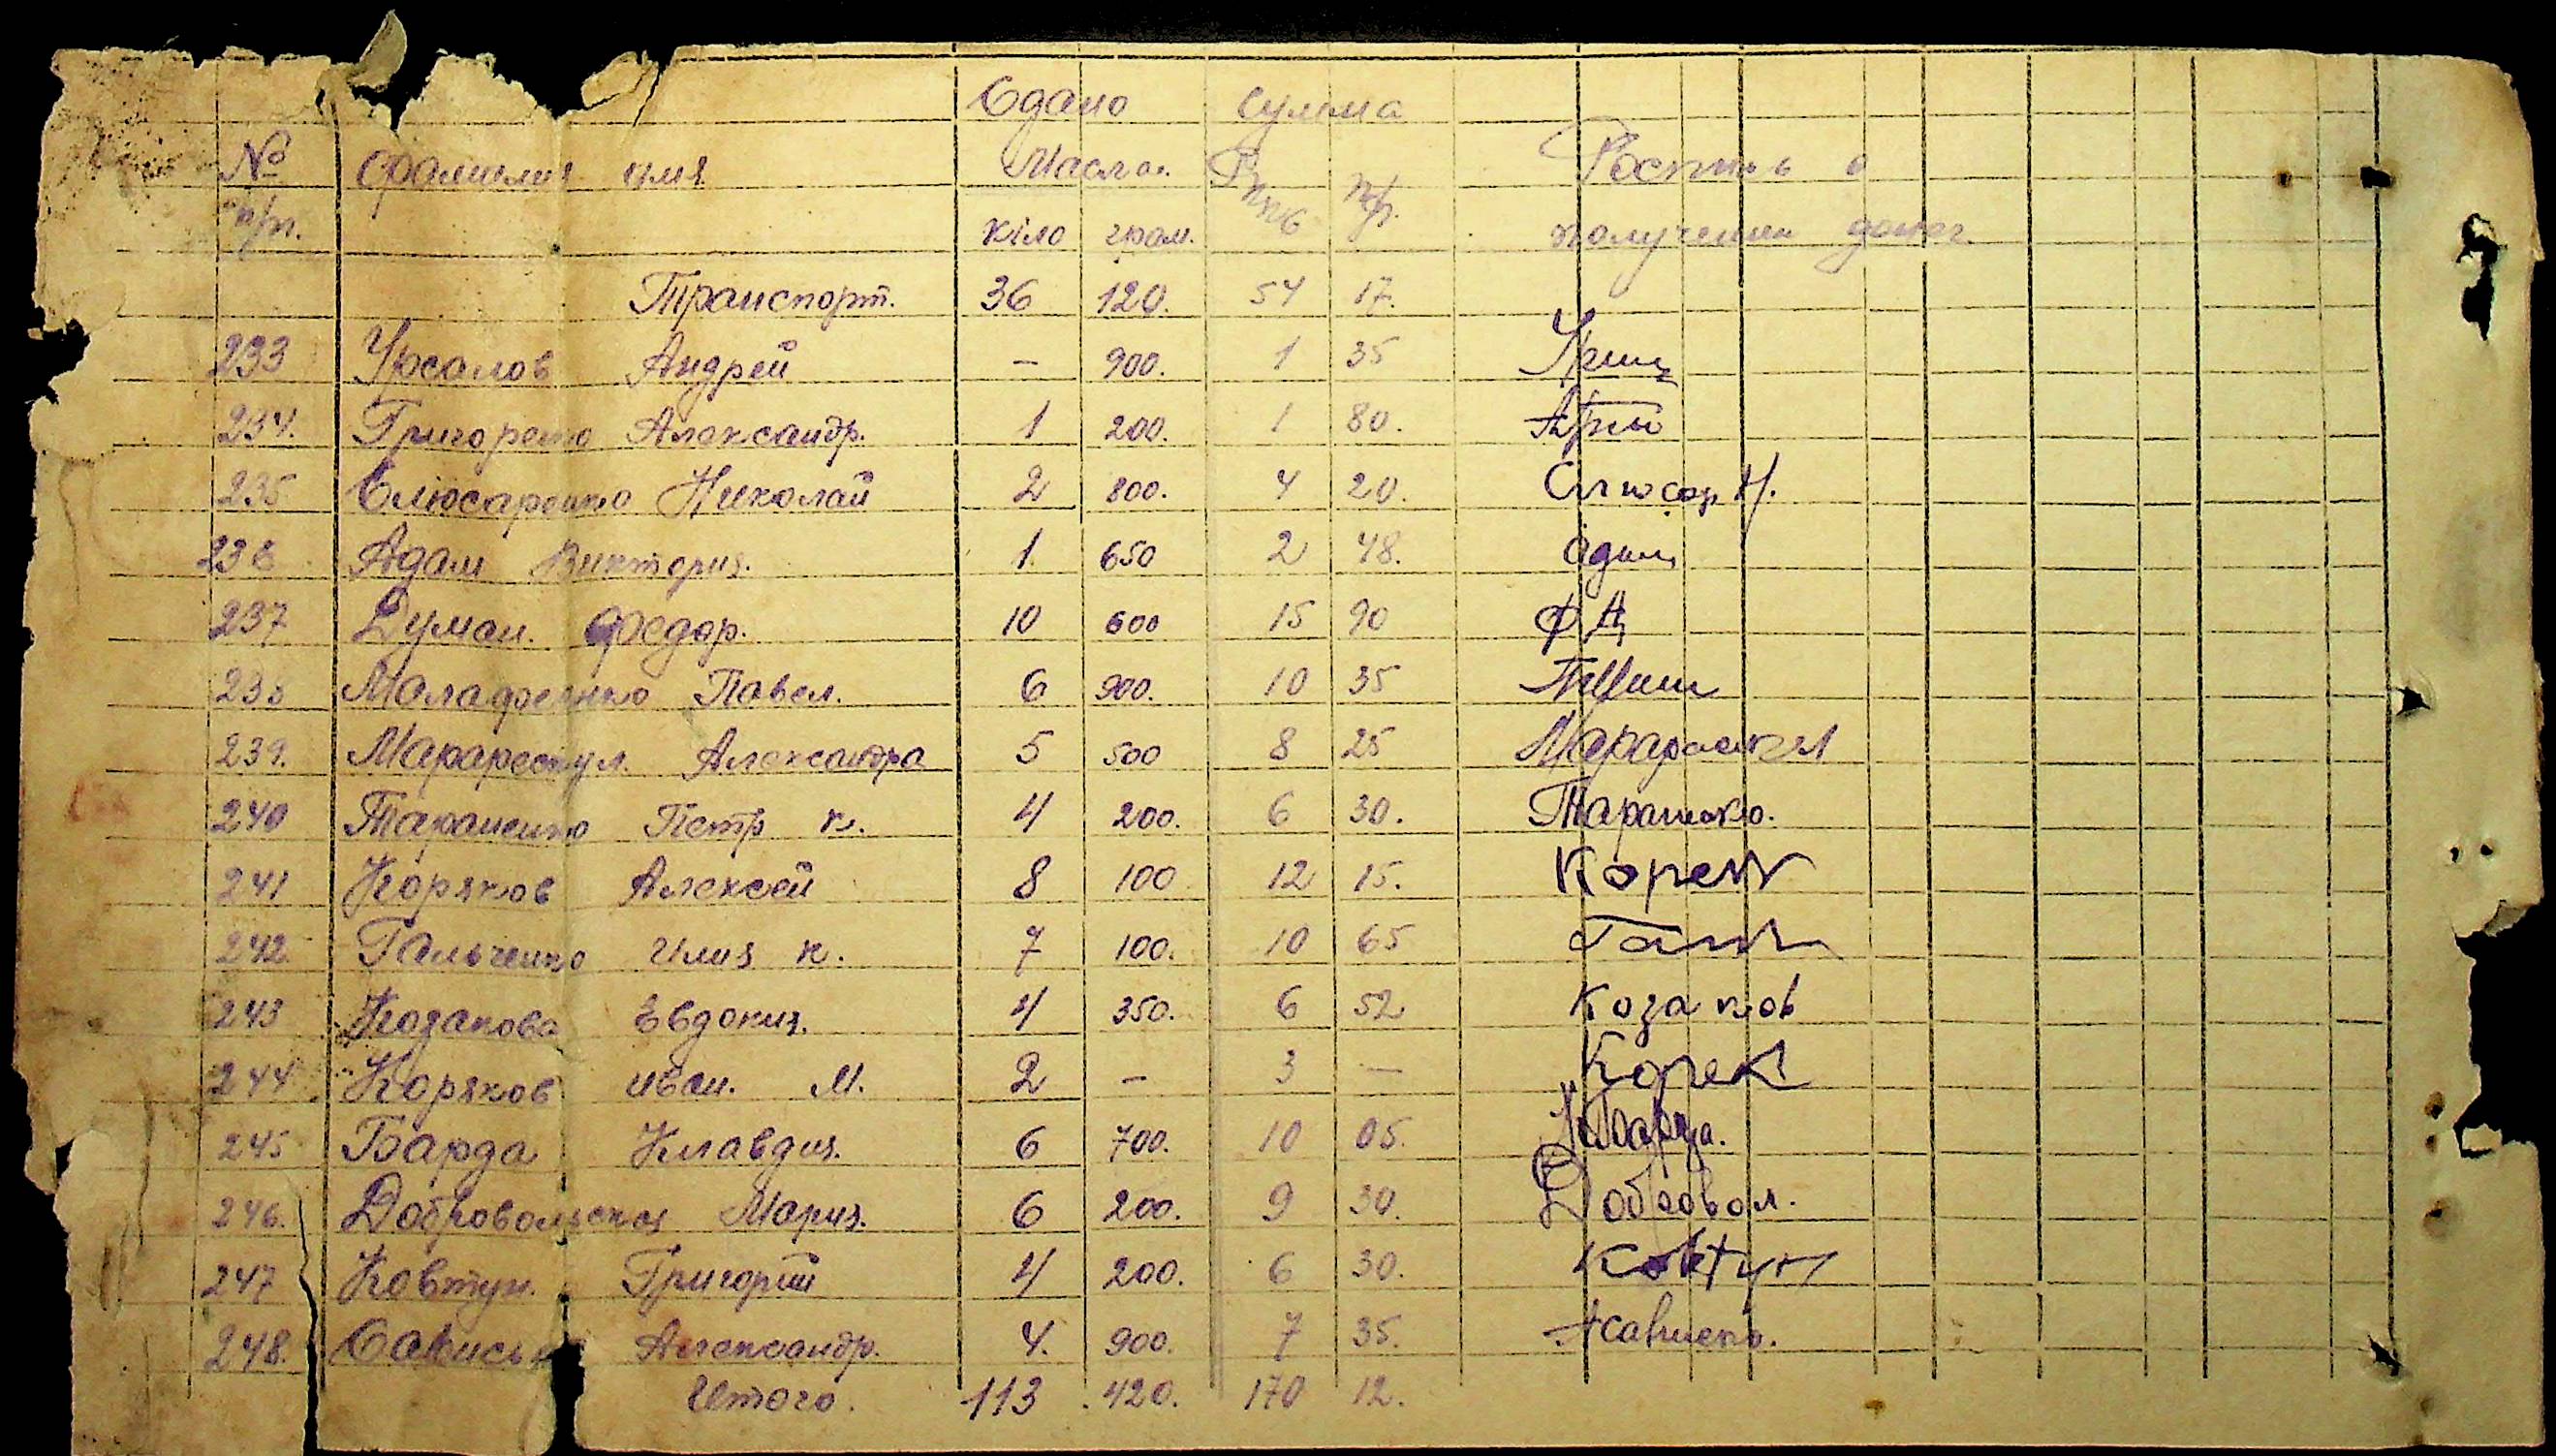 Сдано сумма
№ фамилия имя Масла. Руб
п/п. кіло грам. получении денег
Транспорт. 36 120. 54 17.
233 Урсалов Андрей — 900. 1 35
234. Григоренко Александр. 1 200. 1 80.
235 Слюсаренко Николай 2 800. 4 20. Слюсар Н.
236 Адам Виктория. 1. 650 2 48. Адам
237 Думан. Федор. 10 600 15 90 ФД
238 Молафеенко Павел. 6 900. 10 35
239. Марарескул. Александра 5 500 8 25
240 Тараненко Петр К. 4 200. 6 30. Тараненко.
241 Коряков Алексей 8 100 12 15.
242. Гальченко Илия К. 7 100. 10 65
243 Козакова Евдокия. 4 350. 6 52 Козаков
244 Коряков иван. М. 2 — 3 —
245 Барда Клавдия. 6 700. 10 05. К Барда.
246. Добровольская Мария. 6 200. 9 30. Добровол.
247 Ковтун. Григорий 4 200. 6 30. Ковтун
248. Александр. 4. 900. 7 35.
Итого. 113 .420. 170 12.